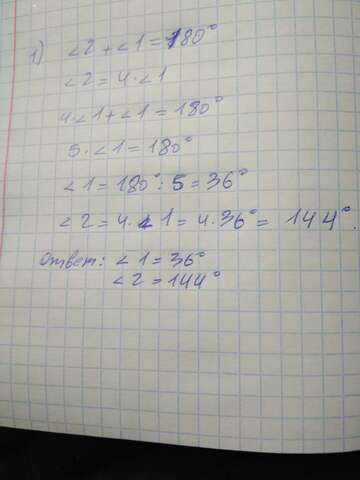 1) ∠2 + ∠1 = 180°
∠2 = 4·∠1
4·∠1 + ∠1 = 180°
5·∠1 = 180°
∠1 = 180° : 5 = 36°
∠2 = 4·∠1 = 4·36° = 144°.
Ответ: ∠1 = 36°
∠2 = 144°